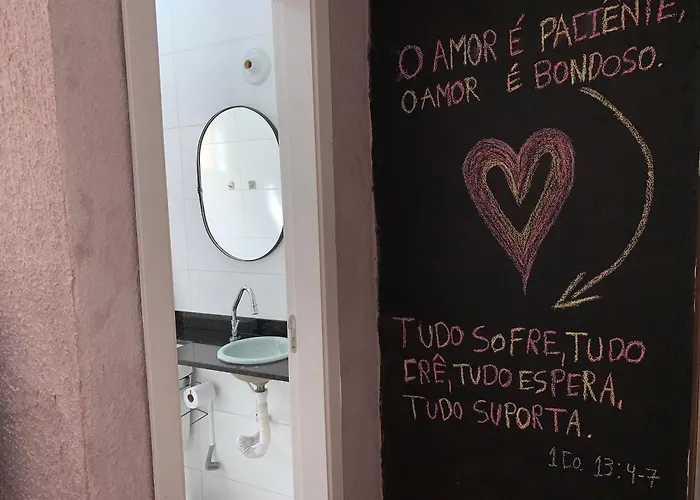 O AMOR É PACIÊNTE,
O AMOR É BONDOSO.
TUDO SOFRE, TUDO
CRÊ, TUDO ESPERA,
TUDO SUPORTA.
1 Co. 13:4-7